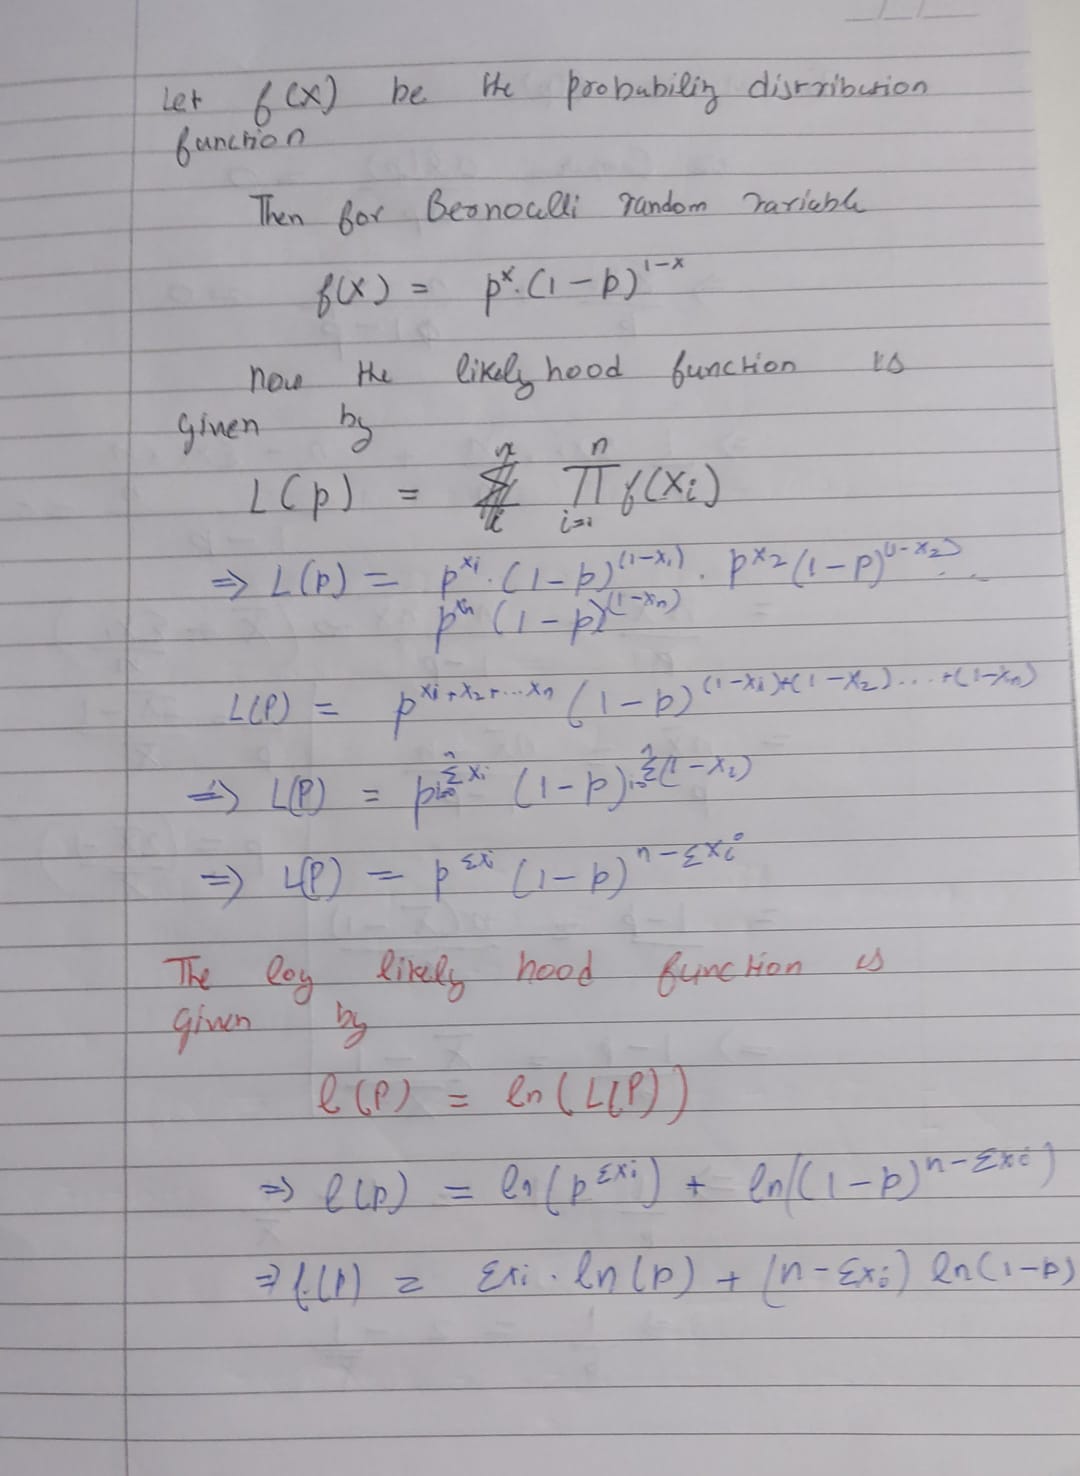 Let f(x) be the probability distribution
function
Then for Bernoulli random variable
f(x) = p^x. (1-p)^{1-x}
now the likely hood function is
given by
L(p) = \prod_{i=1}^{n} f(x_i)
=> L(p) = p^{x_1}. (1-p)^{(1-x_1)} . p^{x_2} (1-p)^{(1-x_2)} ...
p^{x_n} (1-p)^{(1-x_n)}
L(P) = p^{x_1+x_2+...x_n} (1-p)^{(1-x_1)+(1-x_2)...+(1-x_n)}
=> L(P) = p^{\sum_{i=1}^{n} x_i} (1-p)^{\sum_{i=1}^{n}(1-x_i)}
=> L(P) = p^{Σxi} (1-p)^{n-Σxi}
The log likely hood function is
given by
l(P) = ln(L(P))
=> l(p) = ln(p^{Σxi}) + ln((1-p)^{n-Σxi})
=> l(p) = Σxi . ln(p) + (n-Σxi) ln(1-p)